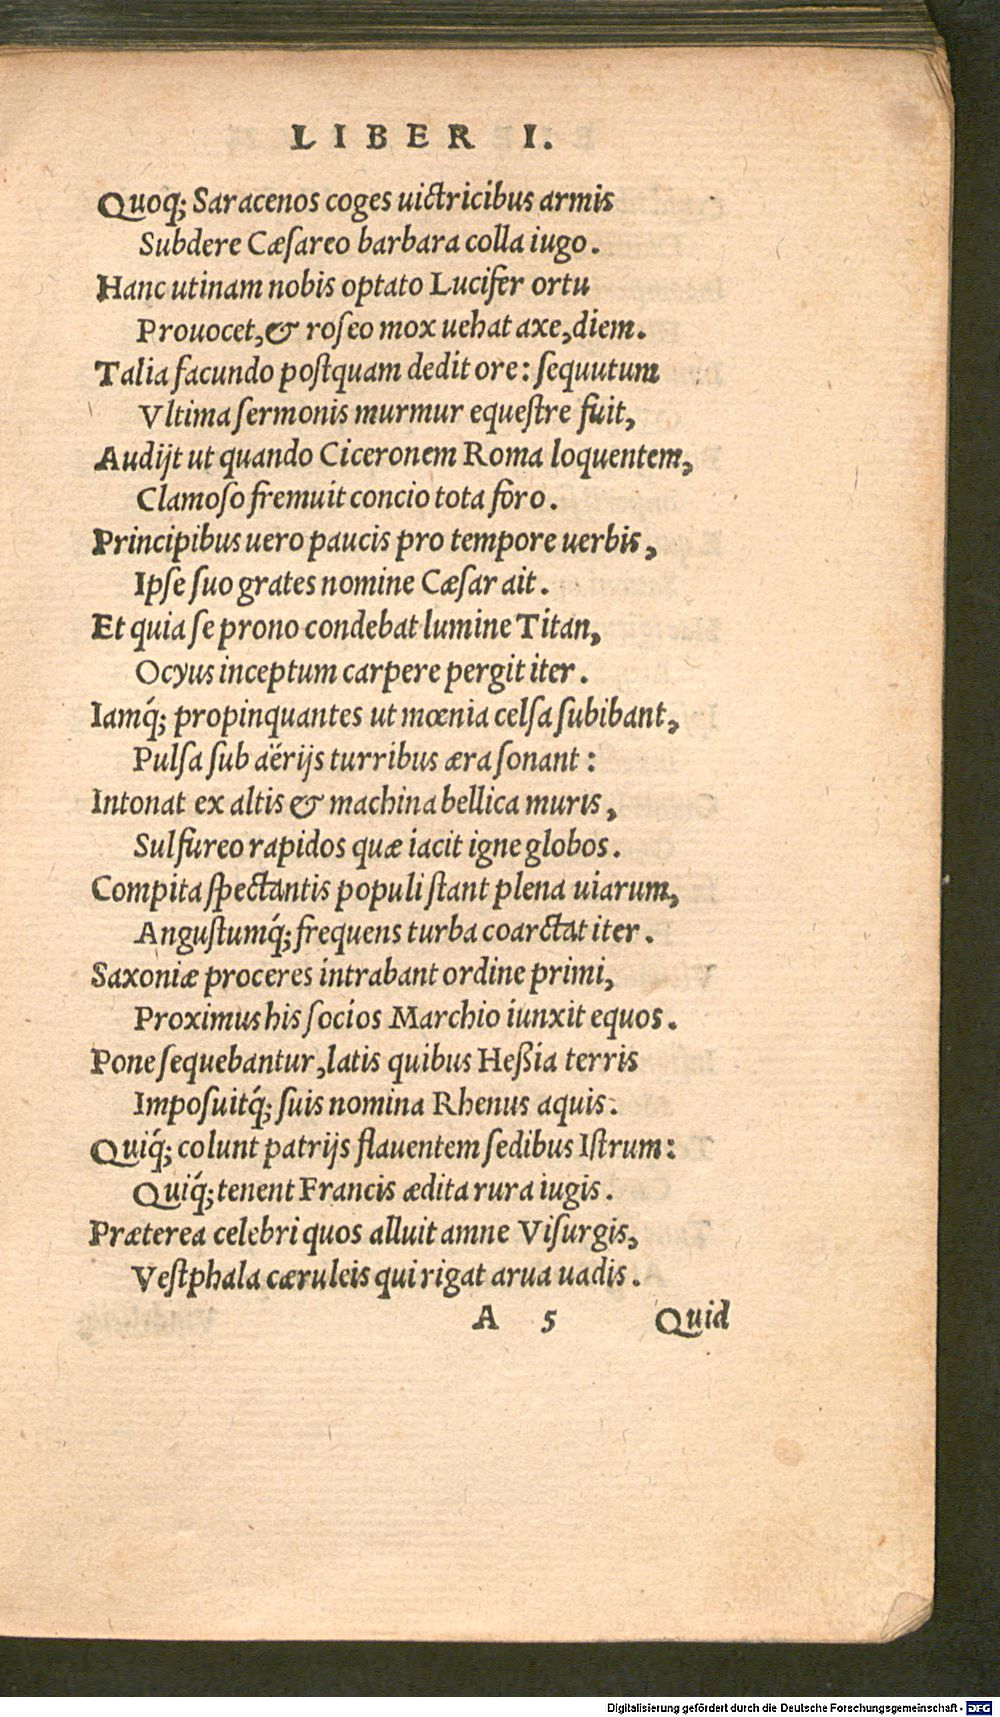 LIBER I.
Quoq; Saracenos coges uictricibus armis
Subdere Cæsareo barbara colla iugo.
Hanc utinam nobis optato Lucifer ortu
Prouocet, & roseo mox uehat axe, diem.
Talia facundo postquam dedit ore: sequutum
Vltima sermonis murmur equestre fuit,
Audijt ut quando Ciceronem Roma loquentem,
Clamoso fremuit concio tota foro.
Principibus uero paucis pro tempore uerbis,
Ipse suo grates nomine Cæsar ait.
Et quia se prono condebat lumine Titan,
Ocyus inceptum carpere pergit iter.
Iamq́; propinquantes ut mœnia celsa subibant,
Pulsa sub aërijs turribus æra sonant:
Intonat ex altis & machina bellica muris,
Sulfureo rapidos quæ iacit igne globos.
Compita spectantis populi stant plena uiarum,
Angustumq́; frequens turba coarctat iter.
Saxoniæ proceres intrabant ordine primi,
Proximus his socios Marchio iunxit equos.
Pone sequebantur, latis quibus Heßia terris
Imposuitq́; suis nomina Rhenus aquis.
Quiq́; colunt patrijs flauentem sedibus Istrum:
Quiq́; tenent Francis ædita rura iugis.
Præterea celebri quos alluit amne Visurgis,
Vestphala cæruleis qui rigat arua uadis.
A 5 Quid
Digitalisierung gefördert durch die Deutsche Forschungsgemeinschaft - DFG